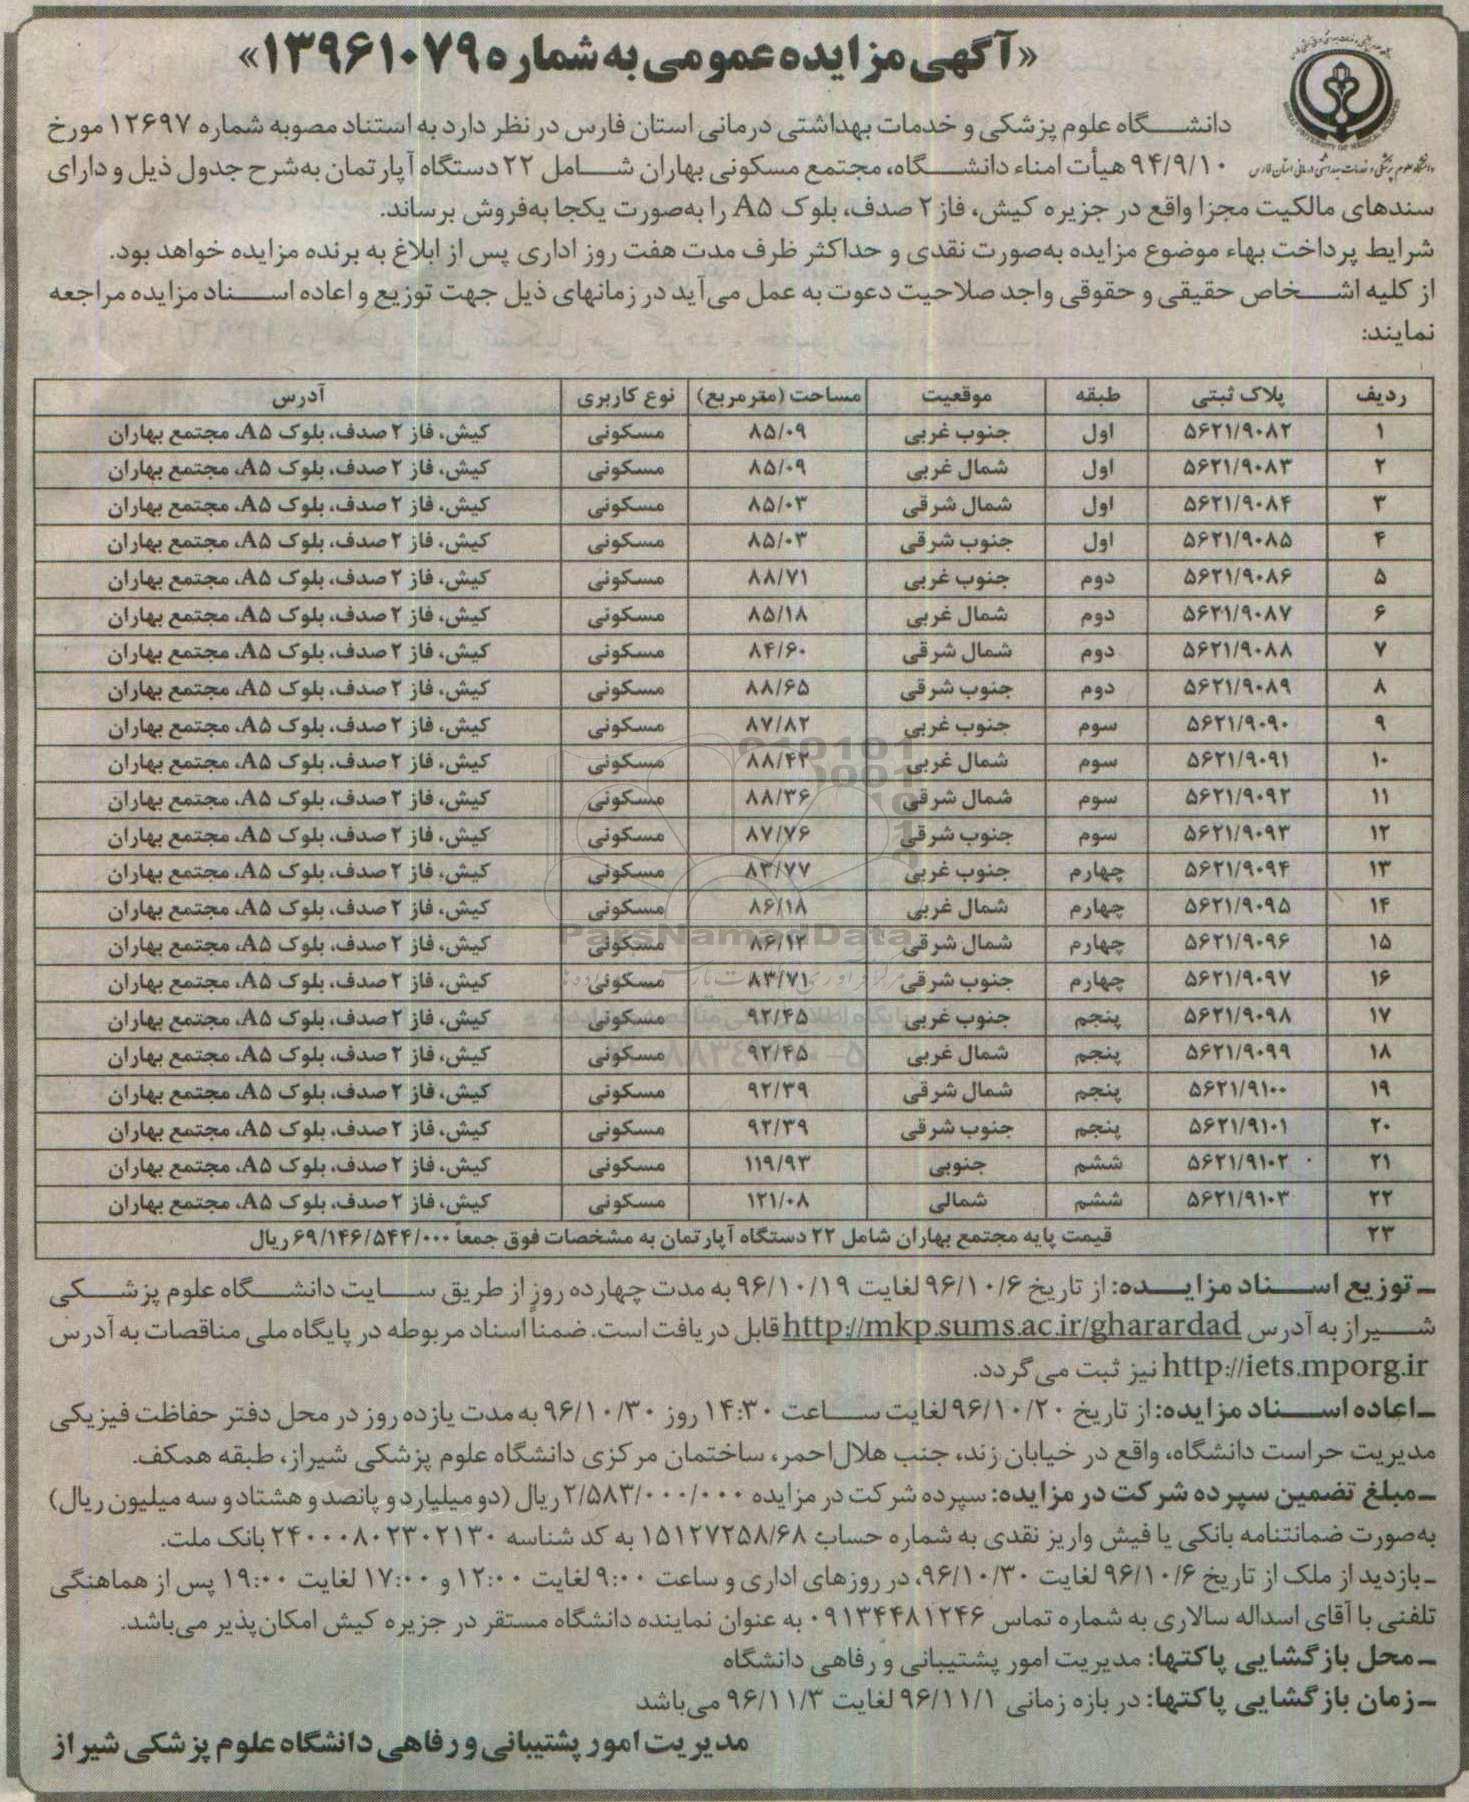 «آگهی مزایده عمومی به شماره ۱۳۹۶۱۰۷۹»
دانشگاه علوم پزشکی و خدمات بهداشتی درمانی استان فارس
دانشگاه علوم پزشکی و خدمات بهداشتی درمانی استان فارس در نظر دارد به استناد مصوبه شماره ۱۲۶۹۷ مورخ
۹۴/۹/۱۰ هیأت امناء دانشگاه، مجتمع مسکونی بهاران شامل ۲۲ دستگاه آپارتمان به‌شرح جدول ذیل و دارای
سندهای مالکیت مجزا واقع در جزیره کیش، فاز ۲ صدف، بلوک A۵ را به‌صورت یکجا به‌فروش برساند.
شرایط پرداخت بهاء موضوع مزایده به‌صورت نقدی و حداکثر ظرف مدت هفت روز اداری پس از ابلاغ به برنده مزایده خواهد بود.
از کلیه اشخاص حقیقی و حقوقی واجد صلاحیت دعوت به عمل می‌آید در زمانهای ذیل جهت توزیع و اعاده اسناد مزایده مراجعه
نمایند:
ردیف پلاک ثبتی طبقه موقعیت مساحت (مترمربع) نوع کاربری آدرس
۱ ۵۶۲۱/۹۰۸۲ اول جنوب غربی ۸۵/۰۹ مسکونی کیش، فاز ۲ صدف، بلوک A۵، مجتمع بهاران
۲ ۵۶۲۱/۹۰۸۳ اول شمال غربی ۸۵/۰۹ مسکونی کیش، فاز ۲ صدف، بلوک A۵، مجتمع بهاران
۳ ۵۶۲۱/۹۰۸۴ اول شمال شرقی ۸۵/۰۳ مسکونی کیش، فاز ۲ صدف، بلوک A۵، مجتمع بهاران
۴ ۵۶۲۱/۹۰۸۵ اول جنوب شرقی ۸۵/۰۳ مسکونی کیش، فاز ۲ صدف، بلوک A۵، مجتمع بهاران
۵ ۵۶۲۱/۹۰۸۶ دوم جنوب غربی ۸۸/۷۱ مسکونی کیش، فاز ۲ صدف، بلوک A۵، مجتمع بهاران
۶ ۵۶۲۱/۹۰۸۷ دوم شمال غربی ۸۵/۱۸ مسکونی کیش، فاز ۲ صدف، بلوک A۵، مجتمع بهاران
۷ ۵۶۲۱/۹۰۸۸ دوم شمال شرقی ۸۴/۶۰ مسکونی کیش، فاز ۲ صدف، بلوک A۵، مجتمع بهاران
۸ ۵۶۲۱/۹۰۸۹ دوم جنوب شرقی ۸۸/۶۵ مسکونی کیش، فاز ۲ صدف، بلوک A۵، مجتمع بهاران
۹ ۵۶۲۱/۹۰۹۰ سوم جنوب غربی ۸۷/۸۲ مسکونی کیش، فاز ۲ صدف، بلوک A۵، مجتمع بهاران
۱۰ ۵۶۲۱/۹۰۹۱ سوم شمال غربی ۸۸/۴۲ مسکونی کیش، فاز ۲ صدف، بلوک A۵، مجتمع بهاران
۱۱ ۵۶۲۱/۹۰۹۲ سوم شمال شرقی ۸۸/۳۶ مسکونی کیش، فاز ۲ صدف، بلوک A۵، مجتمع بهاران
۱۲ ۵۶۲۱/۹۰۹۳ سوم جنوب شرقی ۸۷/۷۶ مسکونی کیش، فاز ۲ صدف، بلوک A۵، مجتمع بهاران
۱۳ ۵۶۲۱/۹۰۹۴ چهارم جنوب غربی ۸۳/۷۷ مسکونی کیش، فاز ۲ صدف، بلوک A۵، مجتمع بهاران
۱۴ ۵۶۲۱/۹۰۹۵ چهارم شمال غربی ۸۶/۱۸ مسکونی کیش، فاز ۲ صدف، بلوک A۵، مجتمع بهاران
۱۵ ۵۶۲۱/۹۰۹۶ چهارم شمال شرقی ۸۶/۱۲ مسکونی کیش، فاز ۲ صدف، بلوک A۵، مجتمع بهاران
۱۶ ۵۶۲۱/۹۰۹۷ چهارم جنوب شرقی ۸۳/۷۱ مسکونی کیش، فاز ۲ صدف، بلوک A۵، مجتمع بهاران
۱۷ ۵۶۲۱/۹۰۹۸ پنجم جنوب غربی ۹۲/۴۵ مسکونی کیش، فاز ۲ صدف، بلوک A۵، مجتمع بهاران
۱۸ ۵۶۲۱/۹۰۹۹ پنجم شمال غربی ۹۲/۴۵ مسکونی کیش، فاز ۲ صدف، بلوک A۵، مجتمع بهاران
۱۹ ۵۶۲۱/۹۱۰۰ پنجم شمال شرقی ۹۲/۳۹ مسکونی کیش، فاز ۲ صدف، بلوک A۵، مجتمع بهاران
۲۰ ۵۶۲۱/۹۱۰۱ پنجم جنوب شرقی ۹۲/۳۹ مسکونی کیش، فاز ۲ صدف، بلوک A۵، مجتمع بهاران
۲۱ ۵۶۲۱/۹۱۰۲ ششم جنوبی ۱۱۹/۹۳ مسکونی کیش، فاز ۲ صدف، بلوک A۵، مجتمع بهاران
۲۲ ۵۶۲۱/۹۱۰۳ ششم شمالی ۱۲۱/۰۸ مسکونی کیش، فاز ۲ صدف، بلوک A۵، مجتمع بهاران
۲۳ قیمت پایه مجتمع بهاران شامل ۲۲ دستگاه آپارتمان به مشخصات فوق جمعاً ۶۹/۱۴۶/۵۴۴/۰۰۰ ریال
ـ توزیع اسناد مزایده: از تاریخ ۹۶/۱۰/۶ لغایت ۹۶/۱۰/۱۹ به مدت چهارده روز از طریق سایت دانشگاه علوم پزشکی
شیراز به آدرس http://mkp.sums.ac.ir/gharardad قابل دریافت است. ضمنا اسناد مربوطه در پایگاه ملی مناقصات به آدرس
http://iets.mporg.ir نیز ثبت می‌گردد.
ـ اعاده اسناد مزایده: از تاریخ ۹۶/۱۰/۲۰ لغایت ساعت ۱۴:۳۰ روز ۹۶/۱۰/۳۰ به مدت یازده روز در محل دفتر حفاظت فیزیکی
مدیریت حراست دانشگاه، واقع در خیابان زند، جنب هلال‌احمر، ساختمان مرکزی دانشگاه علوم پزشکی شیراز، طبقه همکف.
ـ مبلغ تضمین سپرده شرکت در مزایده: سپرده شرکت در مزایده ۲/۵۸۳/۰۰۰/۰۰۰ ریال (دو میلیارد و پانصد و هشتاد و سه میلیون ریال)
به‌صورت ضمانتنامه بانکی یا فیش واریز نقدی به شماره حساب ۱۵۱۲۷۲۵۸/۶۸ به کد شناسه ۲۴۰۰۰۸۰۲۳۰۲۱۳۰ بانک ملت.
ـ بازدید از ملک از تاریخ ۹۶/۱۰/۶ لغایت ۹۶/۱۰/۳۰، در روزهای اداری و ساعت ۹:۰۰ لغایت ۱۲:۰۰ و ۱۷:۰۰ لغایت ۱۹:۰۰ پس از هماهنگی
تلفنی با آقای اسداله سالاری به شماره تماس ۰۹۱۳۴۴۸۱۲۴۶ به عنوان نماینده دانشگاه مستقر در جزیره کیش امکان‌پذیر می‌باشد.
ـ محل بازگشایی پاکتها: مدیریت امور پشتیبانی و رفاهی دانشگاه
ـ زمان بازگشایی پاکتها: در بازه زمانی ۹۶/۱۱/۱ لغایت ۹۶/۱۱/۳ می‌باشد
مدیریت امور پشتیبانی و رفاهی دانشگاه علوم پزشکی شیراز
ParsNamadData